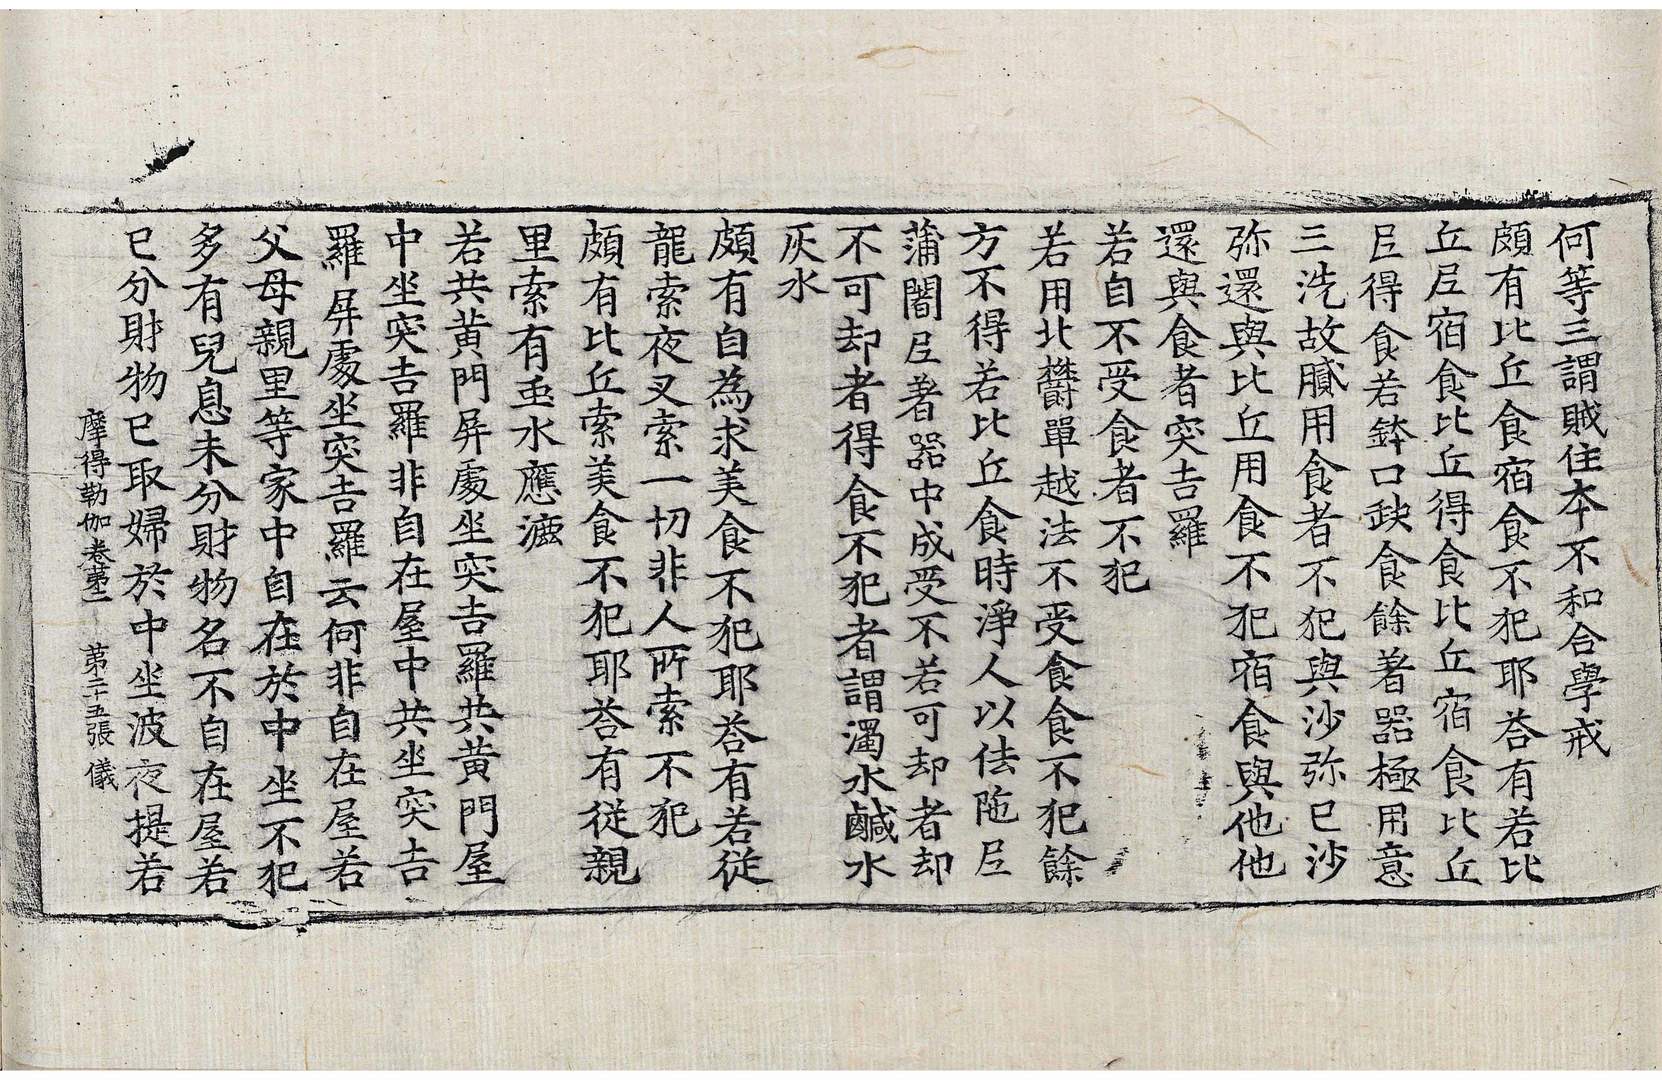 何等三謂賊住本不和合學戒
頗有比丘食宿食不犯耶荅有若比
丘𡰱宿食比丘得食比丘宿食比丘
𡰱得食若鉢口𡙇食餘著器極用意
三洗故膩用食者不犯與沙弥已沙
弥還與比丘用食不犯宿食與他他
還與食者突吉羅
若自不受食者不犯
若用北欝單越法不受食食不犯餘
方不得若比丘食時淨人以佉陁𡰱
蒲闍𡰱著器中成受不若可却者却
不可却者得食不犯者謂濁水鹹水
灰水
頗有自為求美食不犯耶荅有若従
龍索夜叉索一切非人所索不犯
頗有比丘索美食不犯耶荅有従親
里索有䖝水應漉
若共黄門屏處坐突吉羅共黄門屋
中坐突吉羅非自在屋中共坐突吉
羅屏處坐突吉羅云何非自在屋若
父母親里等家中自在於中坐不犯
多有兒息未分財物名不自在屋若
已分財物已取婦於中坐波夜提若
摩得勒伽卷苐二 苐二十五張 儀